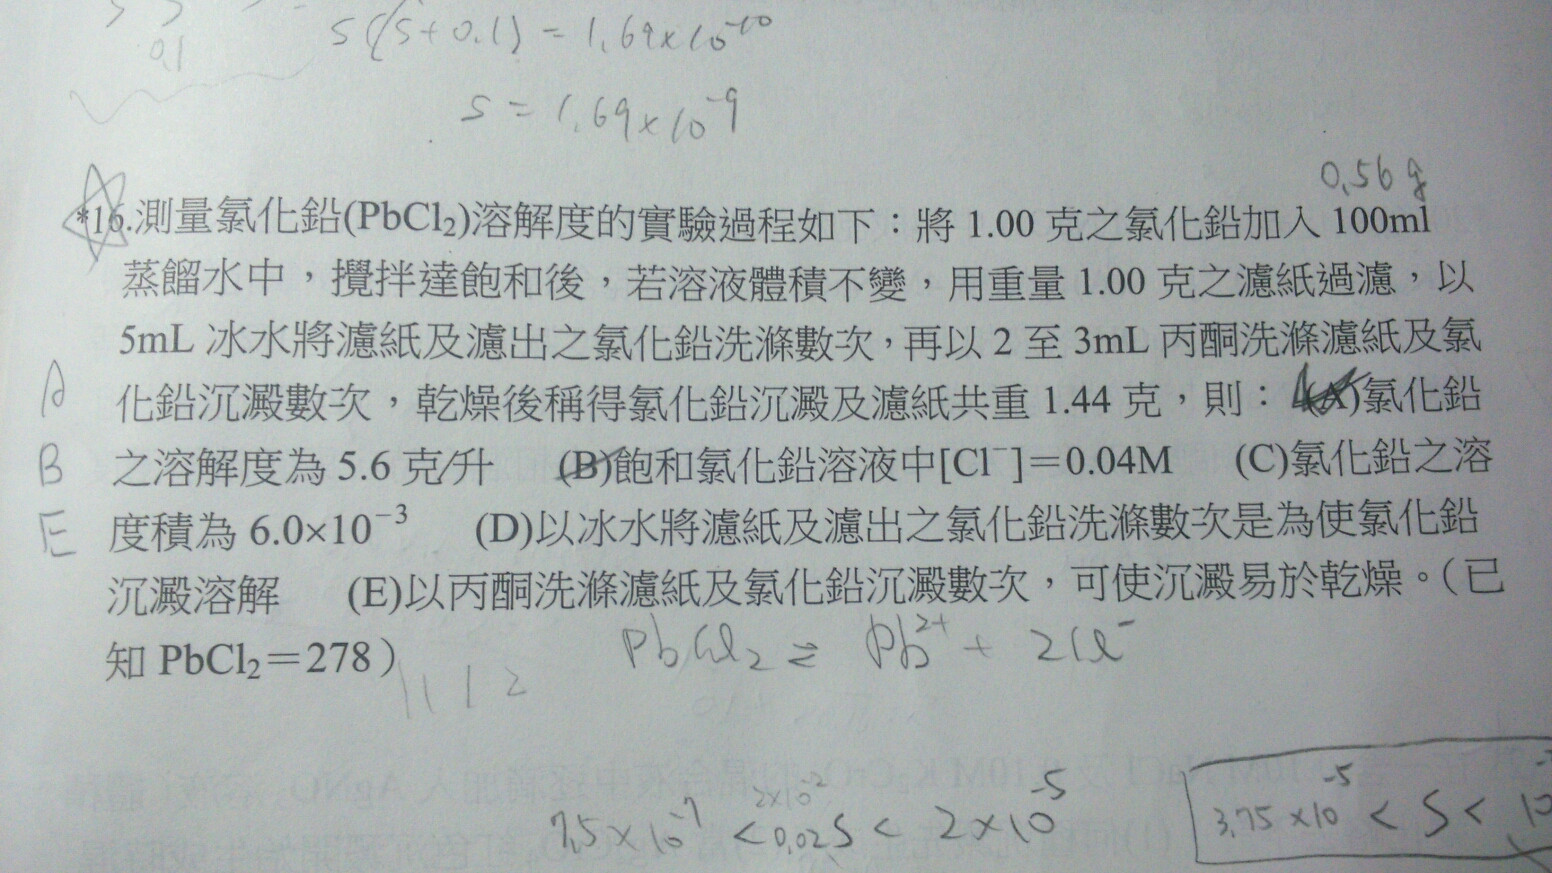 0.1
S(S+0.1) = 1.69×10⁻¹⁰
S = 1.69×10⁻⁹
0.56g
*16.測量氯化鉛(PbCl₂)溶解度的實驗過程如下：將 1.00 克之氯化鉛加入 100ml
蒸餾水中，攪拌達飽和後，若溶液體積不變，用重量 1.00 克之濾紙過濾，以
5mL 冰水將濾紙及濾出之氯化鉛洗滌數次，再以 2 至 3mL 丙酮洗滌濾紙及氯
化鉛沉澱數次，乾燥後稱得氯化鉛沉澱及濾紙共重 1.44 克，則： (A)氯化鉛
之溶解度為 5.6 克/升 (B)飽和氯化鉛溶液中[Cl⁻]＝0.04M (C)氯化鉛之溶
度積為 6.0×10⁻³ (D)以冰水將濾紙及濾出之氯化鉛洗滌數次是為使氯化鉛
沉澱溶解 (E)以丙酮洗滌濾紙及氯化鉛沉澱數次，可使沉澱易於乾燥。（已
知 PbCl₂＝278）
A
B
E
PbCl₂ ⇌ Pb²⁺ + 2Cl⁻
2×10⁻²
7.5×10⁻⁷ < 0.02S < 2×10⁻⁵
3.75×10⁻⁵ < S < 10